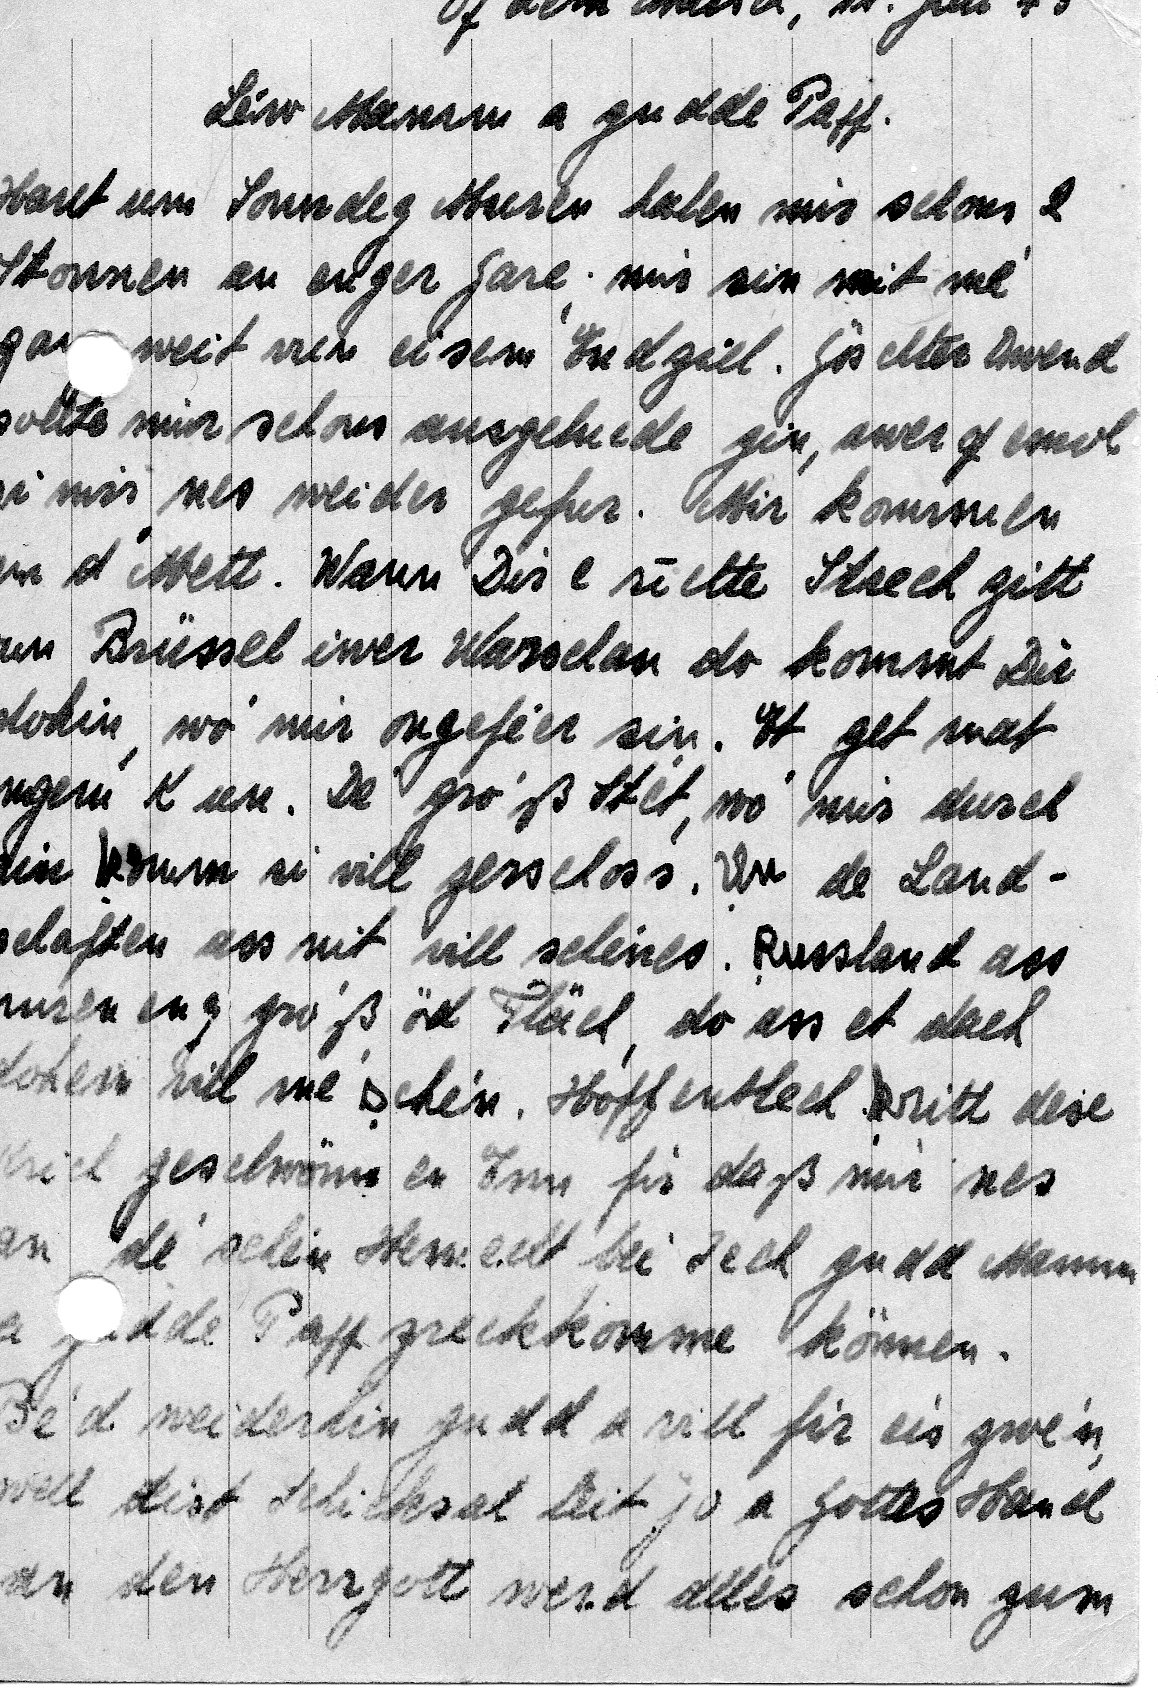 Of dem Marsch, 11. Juli 43
Léiw Mamm a gudde Papp.
Haut um Sonndeg Muren halen mir schons 2
Stonnen an enger Gare, mir sin nit mé
gan weit vun eisem Endziel. Göschter Owend
sollte mir schons ausgelude gin, awer of emol
si mir nes weider gefuer. Mir kommen
an d'Mett. Wann Dir e richte Strech zitt
vun Brüssel iwer Warschau do kommt Dir
dohin, wó mir ongeféier sin. Et get mat
engem K un. Dé gró'ß Stét, wó mir durch
sin komm si vill zerschoss. Vun de Land-
schaften ass nit vill schénes. Russland ass
nuren eng gró'ß öd Fläch, do ass et dach
doheem vill mé schén. Hoffentlech dritt dese
Krich geschwënn en Enn fir daß mir nes
an dé schén Hemecht bei Iech gudd Mamm
a gudde Papp zreckkomme können.
Bé'd weiderhin gudd a vill fir eis zwé'n,
well eist Schicksal leit jo a Gottes Hand
an den Herrgott werd alles schon zum